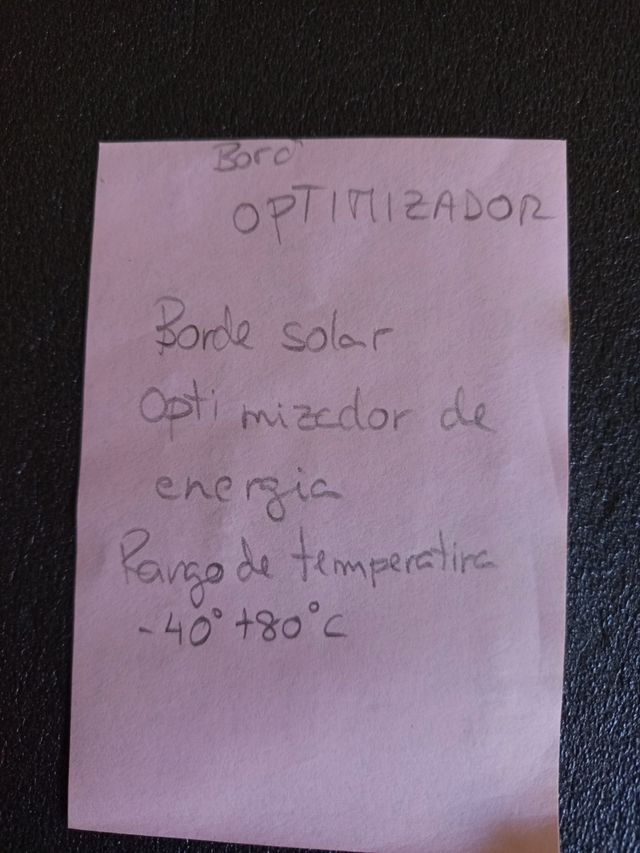 Bord
OPTIMIZADOR
Borde solar
Optimizador de
energia
Rango de temperatura
-40° +80°C